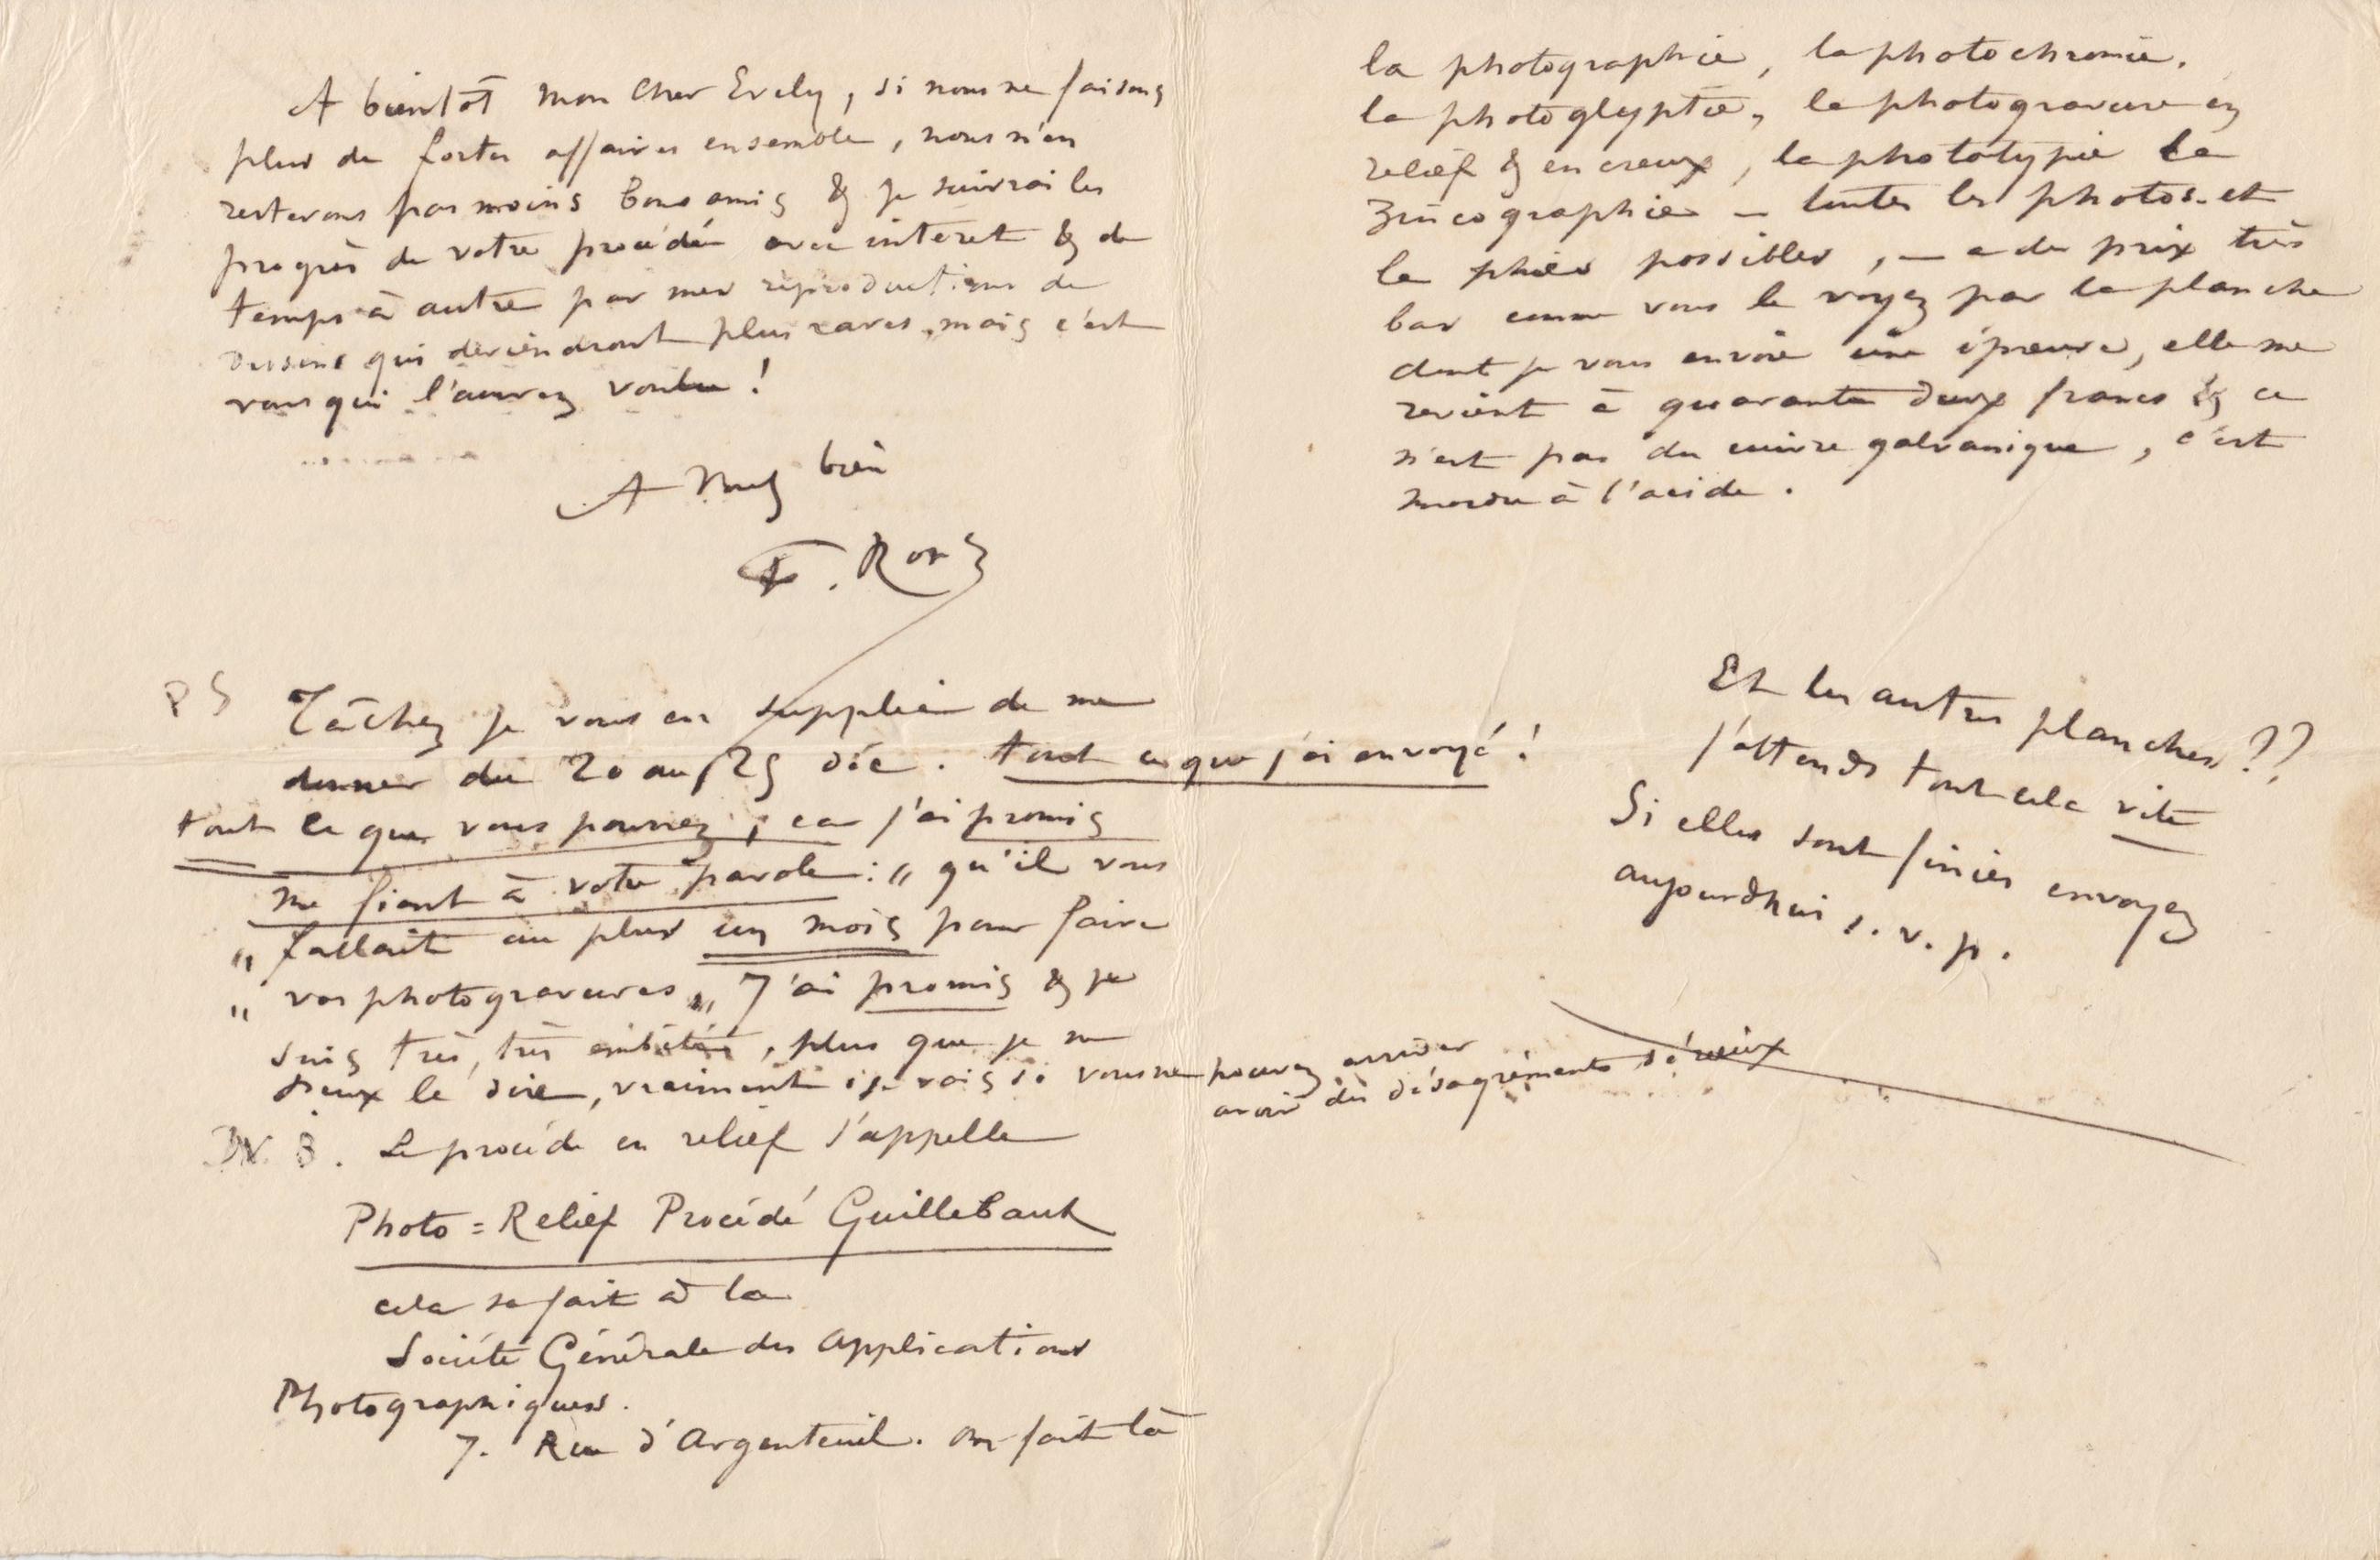 A bientôt mon cher Evely, si nous ne faisons
plus de fortes affaires ensemble, nous n'en
resterons pas moins bons amis & je suivrai les
progrès de votre procédé avec intéret & de
temps à autre par mes reproductions de
dessins qui deviendront plus rares, mais c'est
vous qui l'aurez voulu !
A Vous bien
F. Rops
PS Tâchez je vous en supplie de me
donner du 20 au 25 déc. tout ce que j'ai envoyé !
tout ce que vous pourrez ; car j'ai promis
me fiant à votre parole : „ qu'il vous
„ fallait au plus un mois pour faire
„ vos photogravures „ J'ai promis & je
suis très, très embêté, plus que je ne
peux le dire, vraiment, je vais si vous ne pouvez arriver
avoir des désagréments sérieux
N. B. Le procédé en relief s'appelle
Photo = Relief Procédé Guillebaut
cela se fait à la
Société Générale des Applications
Photographiques.
7. Rue d'Argenteuil. On fait là
la photographie, la photochromie,
la photoglyptie, la photogravure en
relief & en creux, la phototypie la
zincographie – toutes les photos – et
les phies possibles, – a des prix très
bas comme vous le voyez par la planche
dont je vous envoie une épreuve, elle me
revient à quarante deux francs & ce
n'est pas du cuivre galvanique, c'est
mordu à l'acide.
Et les autres planches ??
j'attends tout cela vite
Si elles sont finies envoyez
aujourdhui s. v. p.